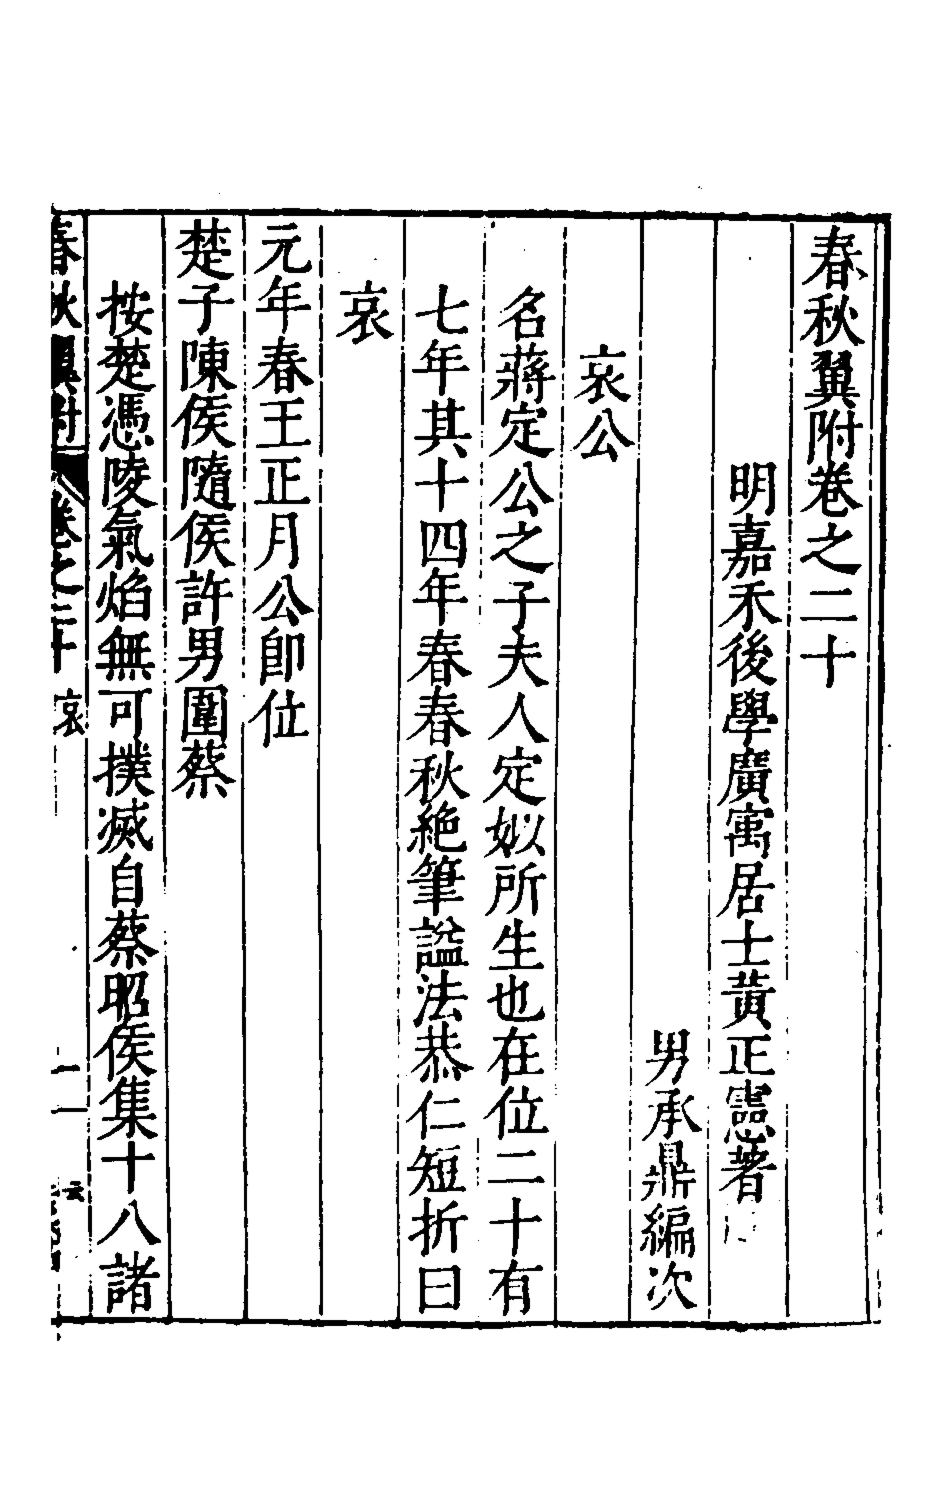 春秋翼附卷之二十
明嘉禾後學廣寓居士黃正憲著
男承鼎編次
哀公
名蔣定公之子夫人定姒所生也在位二十有
七年其十四年春春秋絶筆謚法恭仁短折曰
哀
元年春王正月公即位
楚子陳侯隨侯許男圍蔡
按楚憑陵氣焰無可撲滅自蔡昭侯集十八諸
春秋翼附 卷之二十 哀 一